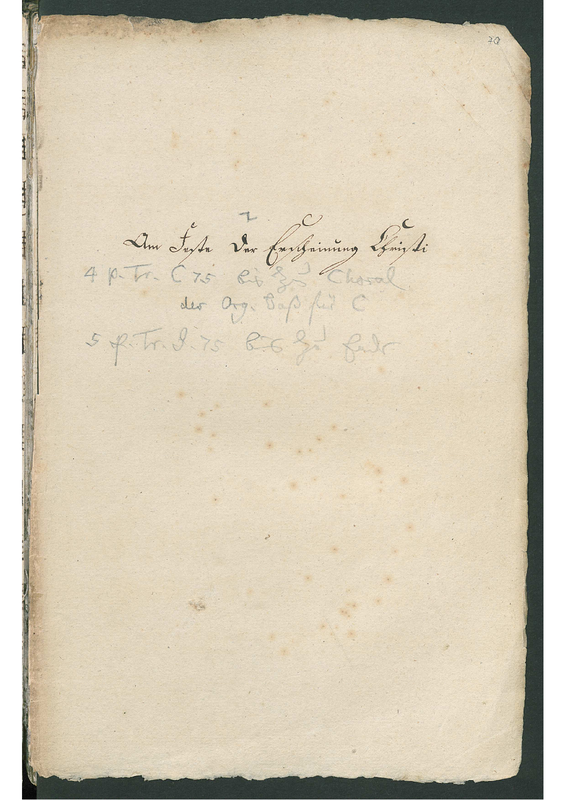 20
Am Feste der Erscheinung Christi
4 p. Tr. C 75 bis zu Choral
der Org. Baß für C
5 p. Tr. 75 bis zu Ende